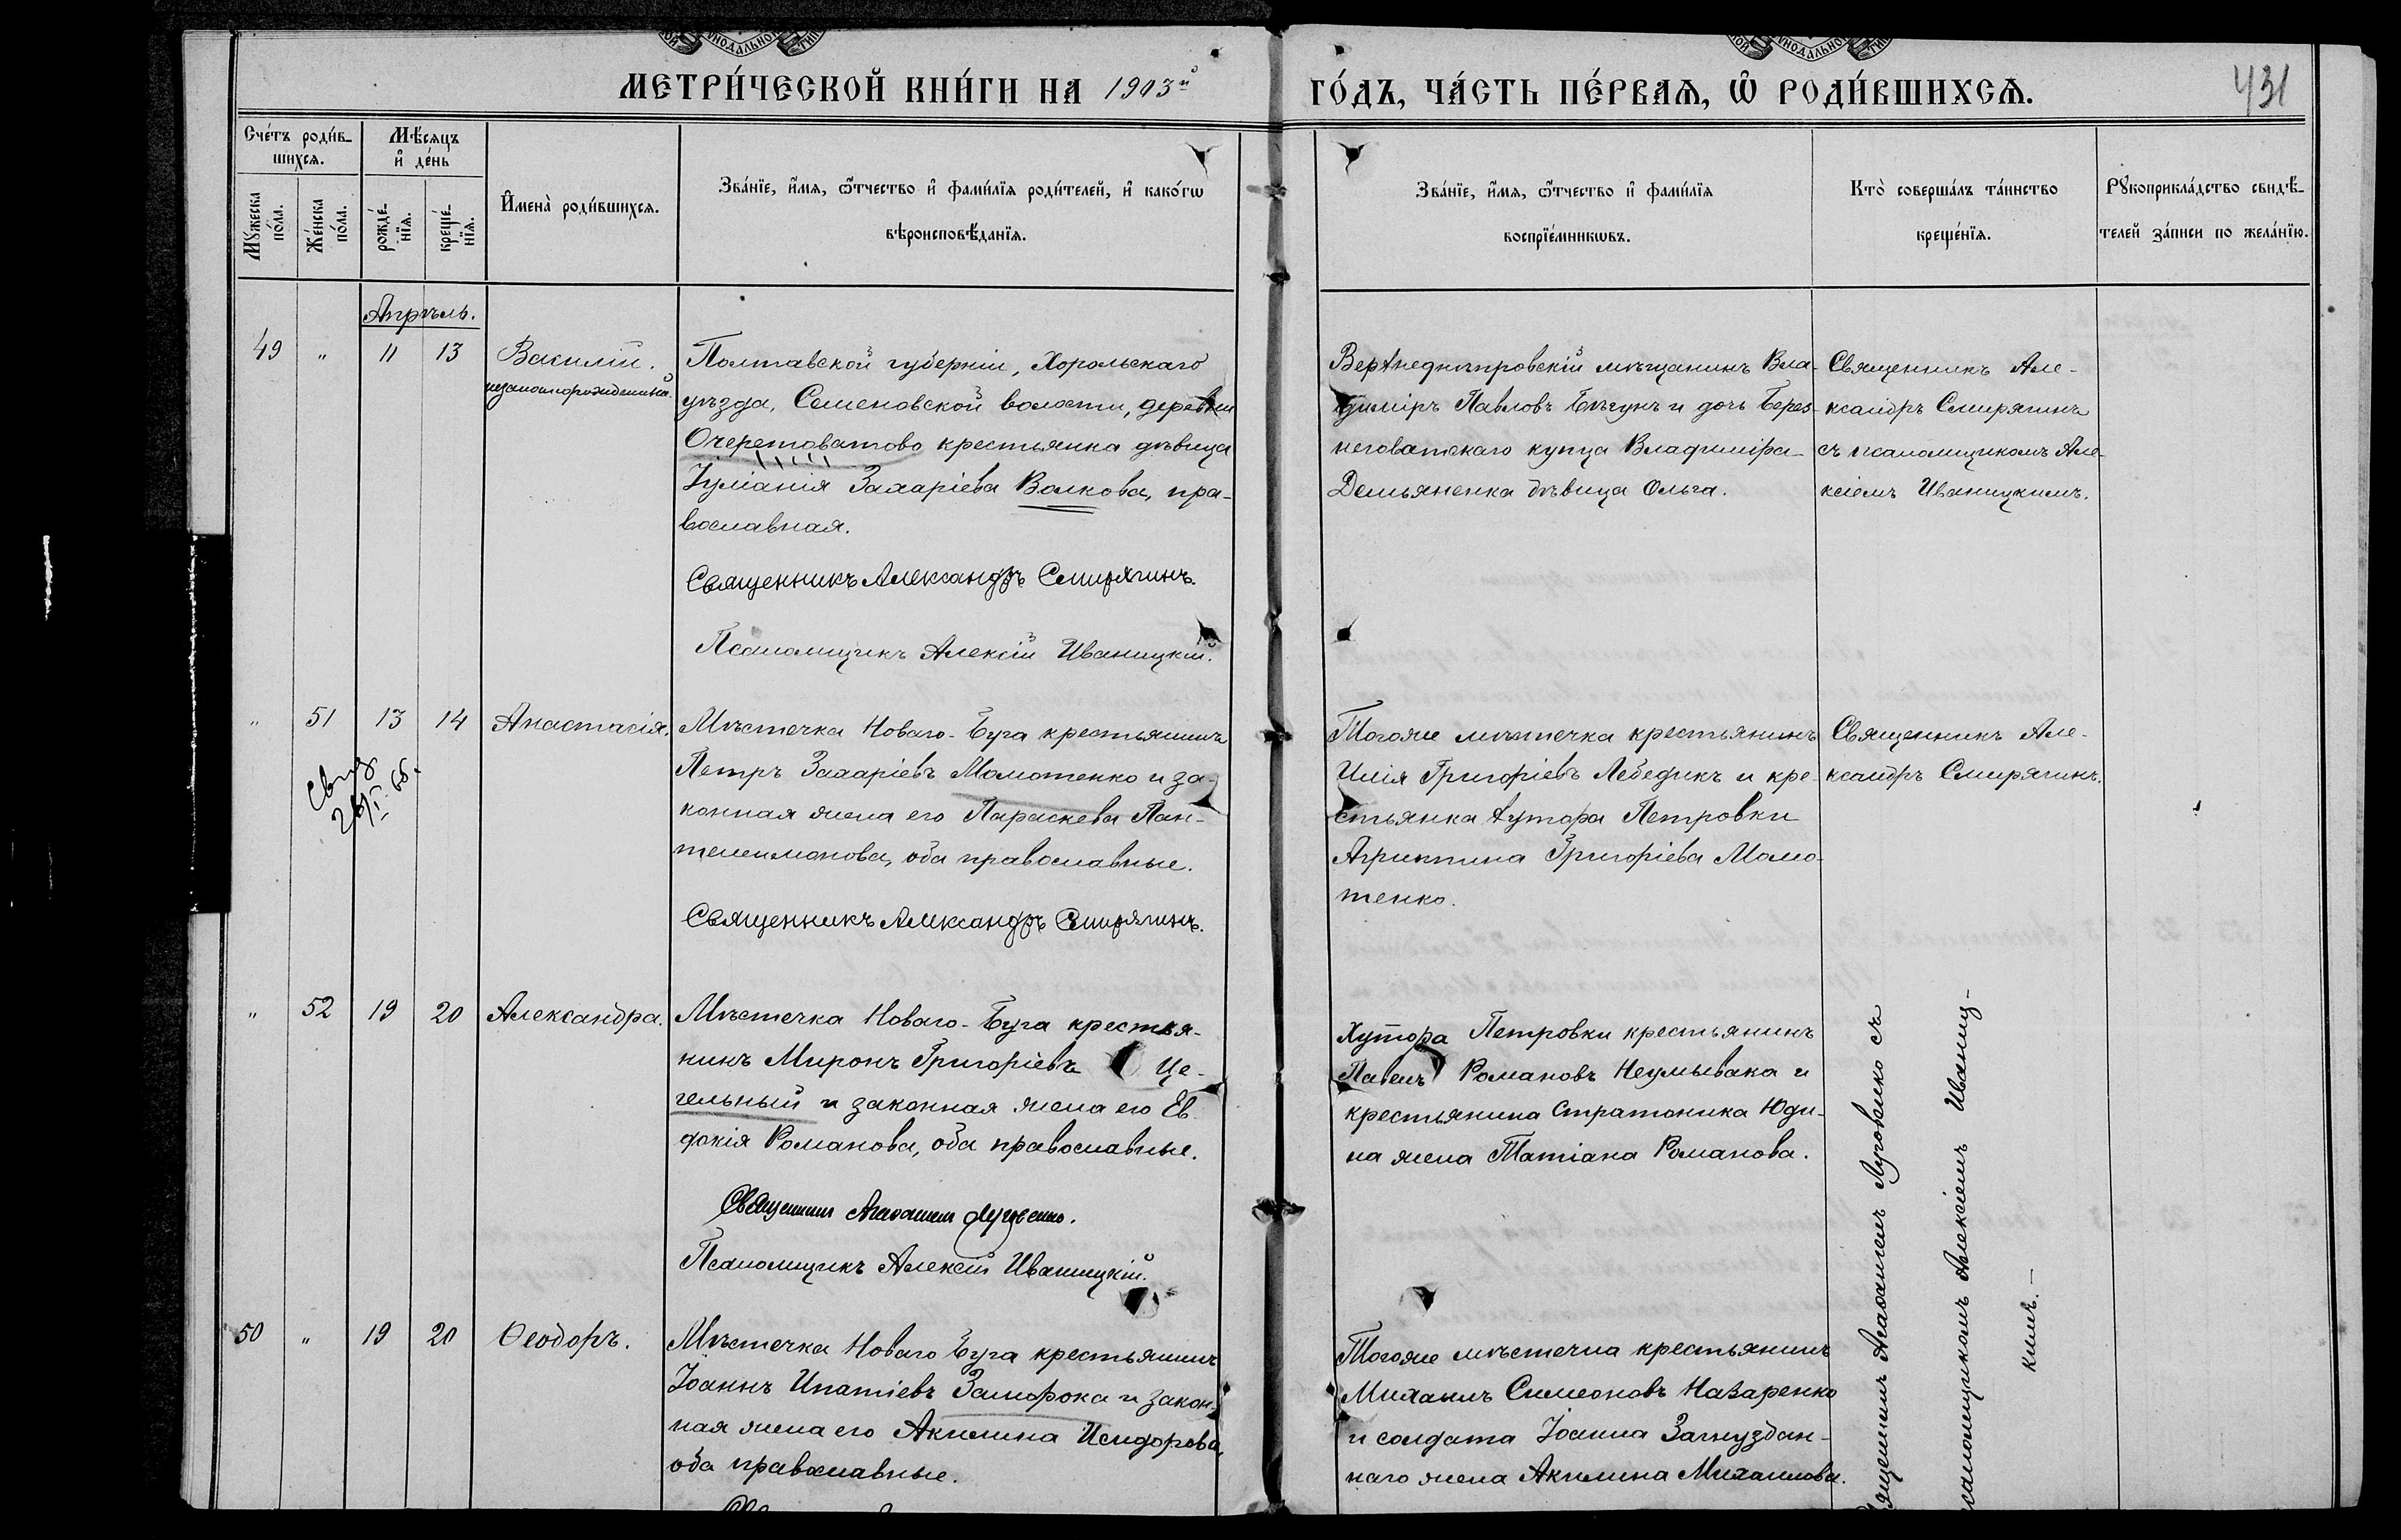 МЕТРИ́ЧЕСКОЙ КНИ́ГИ НА 1903й ГО́ДЪ, ЧА́СТЬ ПЕ́РВАѦ, Ѡ РОДИ́ВШИХСѦ.
431
Сче́тъ роди́в-
шихсѧ.
Мѣ́сѧцъ
и҆ де́нь
Мꙋ́жеска
по́ла.
Же́нска
по́ла.
рожде́-
нїѧ.
креще́-
нїѧ.
И҆мена̀ роди́вшихсѧ.
Зва́нїе, и҆́мѧ, ѻ҆́тчество и҆ фами́лїѧ роди́телей, и҆ како́гѡ
вѣроисповѣ́данїѧ.
Зва́нїе, и҆́мѧ, ѻ҆́тчество и҆ фами́лїѧ
воспрїе́мникѡвъ.
Кто̀ соверша́лъ та́инство
креще́нїѧ.
Рꙋкоприкла́дство свидѣ́-
телей за́писи по жела́нїю.
Апрѣль.
49 " 11 13 Василій.
незаконорожденный.
Полтавской губерніи, Хорольскаго
уѣзда, Семеновской волости, деревни
Очеретоватово крестьянка дѣвица
Іуліанія Захаріева Волкова, пра-
вославная.
Священникъ Александръ Смирягинъ.
Псаломщикъ Алексій Иваницкій.
Верхнеднѣпровскій мѣщанинъ Вла-
диміръ Павловъ Бѣгунъ и дочь Берез-
неговатскаго купца Владиміра
Демьяненка дѣвица Ольга.
Священникъ Але-
ксандръ Смирягинъ
съ псаломщикомъ Але-
ксіемъ Иваницкимъ.
" 51 13 14 Анастасія.
Свид.
Мѣстечка Новаго-Буга крестьянинъ
Петръ Захаріевъ Момотенко и за-
конная жена его Параскева Пан-
телеимонова, оба православные.
Священникъ Александръ Смирягинъ.
Тогоже мѣстечка крестьянинъ
Илія Григоріевъ Лебедикъ и кре-
стьянка хутора Петровки
Агриппина Григоріева Момо-
тенко.
Священникъ Але-
ксандръ Смирягинъ.
" 52 19 20 Александра.
Мѣстечка Новаго-Буга крестья-
нинъ Миронъ Григоріевъ Це-
гельный и законная жена его Ев-
докія Романова, оба православные.
Священникъ Агафангелъ Луговенко.
Псаломщикъ Алексій Иваницкій.
Хутора Петровки крестьянинъ
Павелъ Романовъ Неумывака и
крестьянина Стратоника Юди-
на жена Татіана Романова.
Священникъ Агафангелъ Луговенко съ
псаломщикомъ Алексіемъ Иваниц-
кимъ.—
50 " 19 20 Ѳеодоръ.
Мѣстечка Новаго Буга крестьянинъ
Іоаннъ Ипатіевъ Заморока и закон-
ная жена его Акилина Исидорова,
оба православные.
Тогоже мѣстечка крестьянинъ
Михаилъ Симеоновъ Назаренко
и солдата Іоанна Загнуздан-
наго жена Акилина Михаилова.